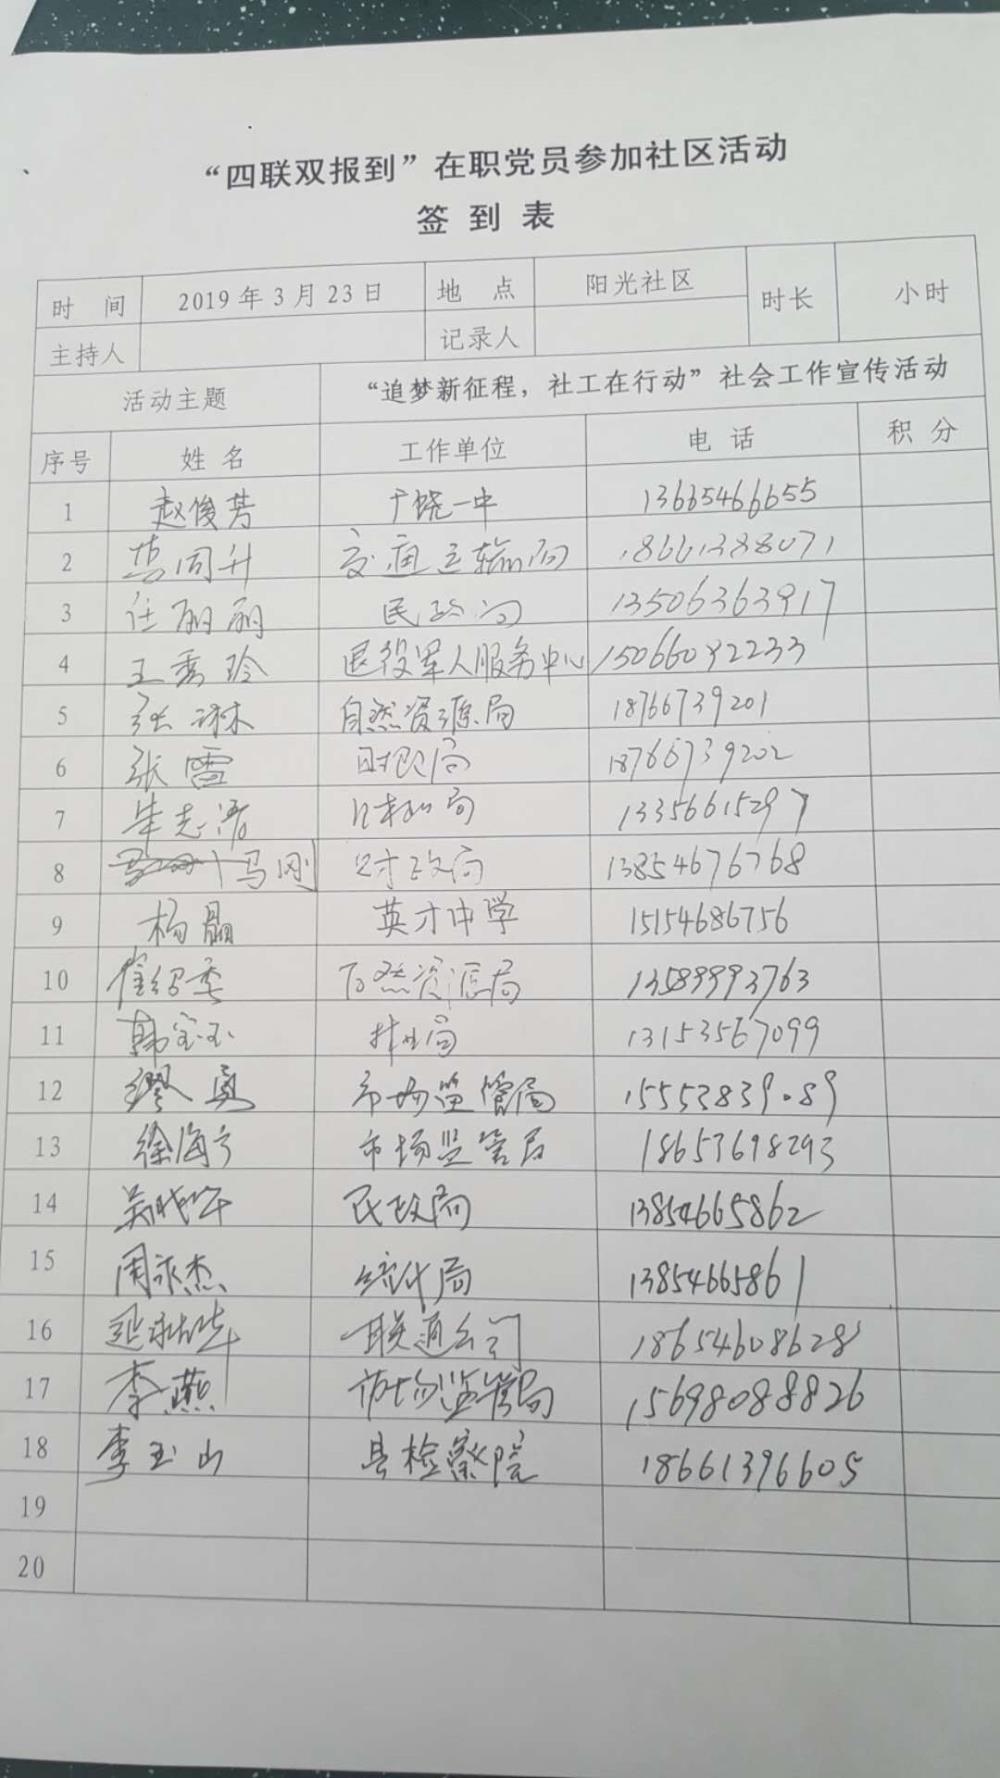 “四联双报到”在职党员参加社区活动
签 到 表
时 间 2019年3月23日 地 点 阳光社区 时长 小时
主持人 记录人
活动主题 “追梦新征程，社工在行动”社会工作宣传活动
序号 姓 名 工作单位 电 话 积 分
1 赵俊芳 广饶一中 13665466655
2 交通运输局 18661388071
3 任丽丽 民政局 13506363917
4 王秀玲 退役军人服务中心 15066092233
5 张琳 自然资源局 18766739201
6 张雷 财政局 18766739202
7 13356615297
8 马刚 财政局 13854676768
9 杨晶 英才中学 15154686756
10 自然资源局 13589993763
11 韩宝玉 13153567099
12 缪勇 市场监管局 15553839089
13 徐海宁 市场监管局 18657698293
14 民政局 13854665862
15 周永杰 统计局 13854665861
16 联通公司 18654608628
17 李燕 市场监管局 15698088826
18 李玉山 县检察院 18661396605
19
20